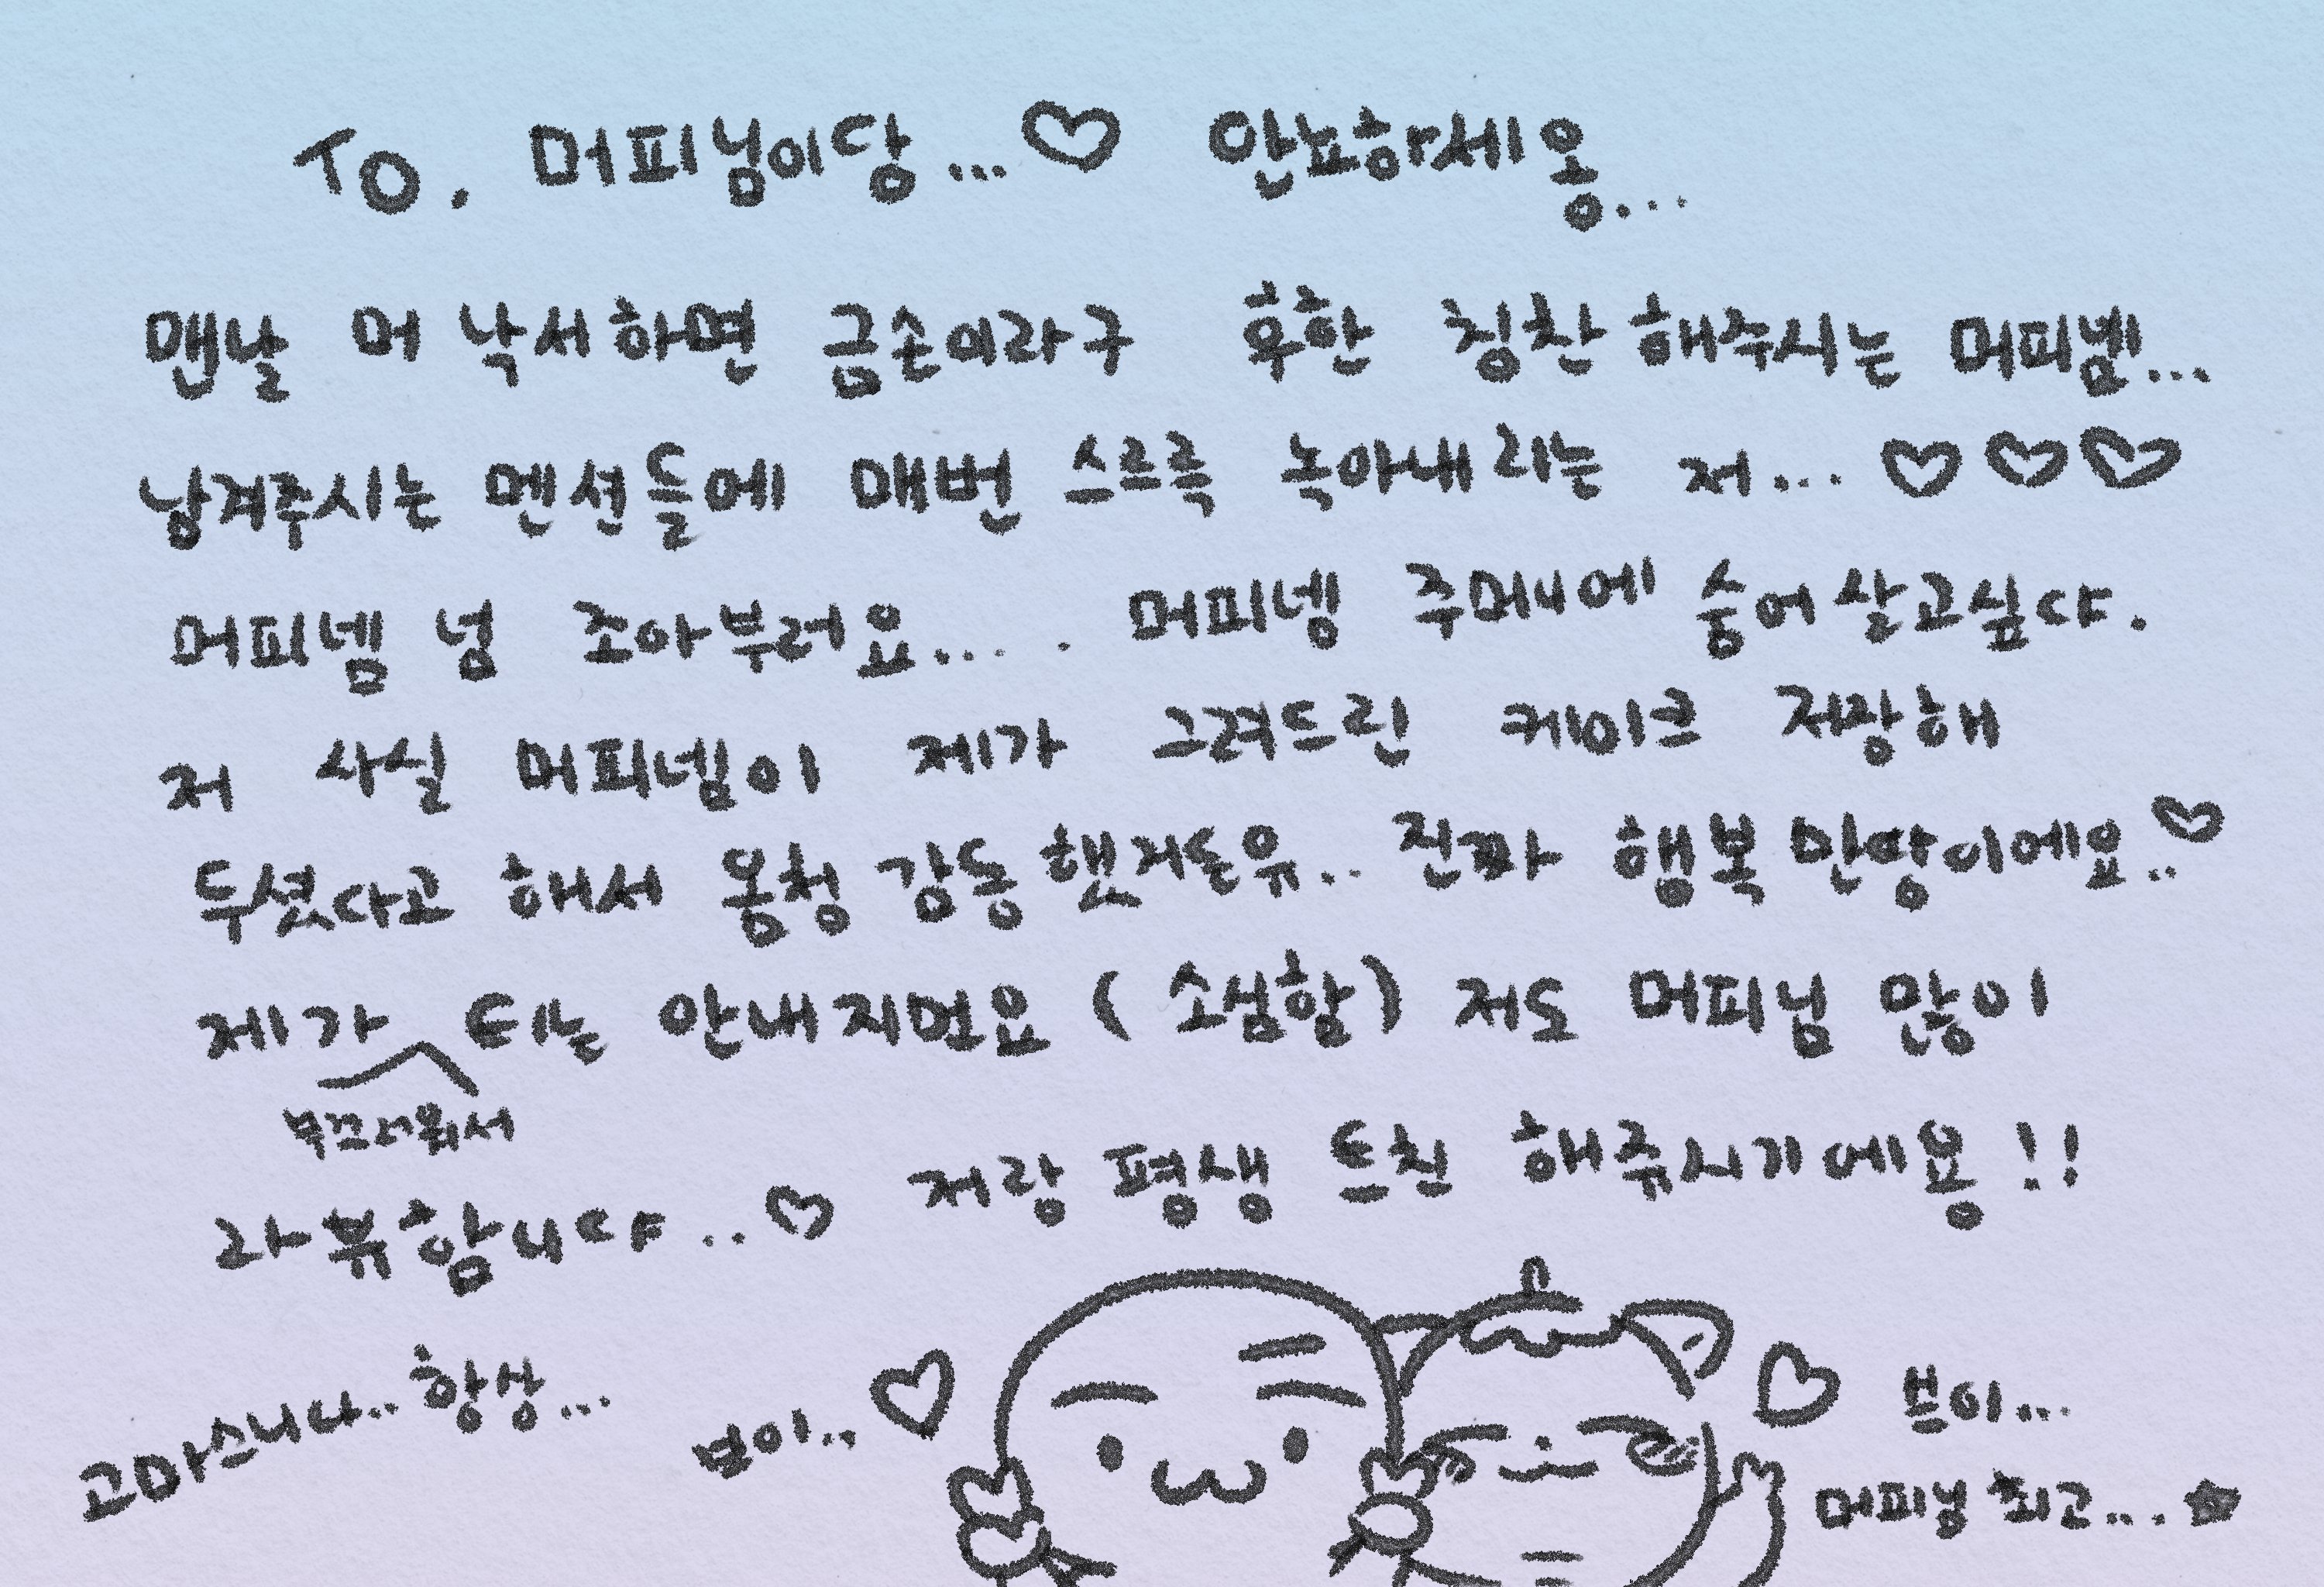 To. 머피님이당...♡ 안뇨하세용...
맨날 머 낙서하면 금손이라구 후한 칭찬 해주시는 머피넴!...
남겨주시는 멘션들에 매번 스르륵 녹아내리는 저...♡♡♡
머피넴 넘 조아부러요.... 머피넹 주머니에 숨어 살고싶다.
저 사실 머피넴이 제가 그려드린 케이크 저장해
두셨다고 해서 몽청 감동 했거든유.. 진짜 행복 만땅이에요..♡
제가 티는 안내지먼요 (소심함) 저도 머피님 많이
부끄러워서
라뷰합니다..♡ 저랑 평생 트친 해쥬시기에용!!
고마스니다.. 항상...
뵤이..♡
♡ 쁘이...
머피닝 최고...☆